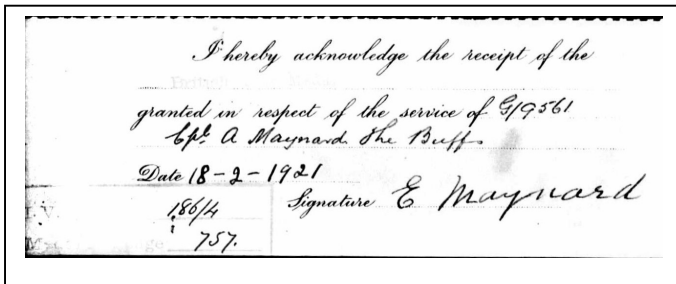 I hereby acknowledge the receipt of the
granted in respect of the service of G/9561
Cpl. A Maynard. The Buffs
Date 18-2-1921
Signature E Maynard
186/4
757.